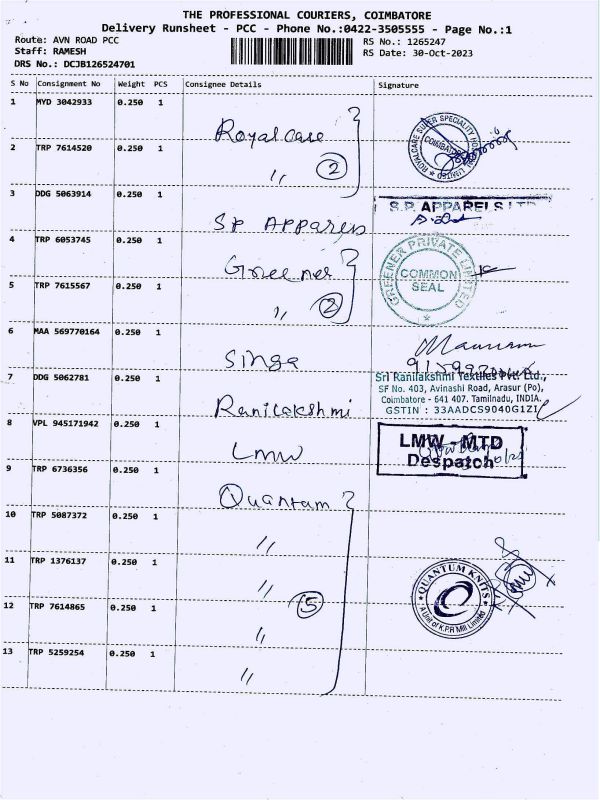 THE PROFESSIONAL COURIERS, COIMBATORE
Delivery Runsheet - PCC - Phone No.:0422-3505555 - Page No.:1
Route: AVN ROAD PCC
Staff: RAMESH
DRS No.: DCJB126524701
RS No.: 1265247
RS Date: 30-Oct-2023
S No Consignment No Weight PCS Consignee Details Signature
1 MYD 3042933 0.250 1 Royalcare
ROYALCARE SUPER SPECIALITY LIMITED COIMBATORE
2 TRP 7614520 0.250 1 〃 2
3 DDG 5063914 0.250 1 SP APPARELS
S.P. APPARELS LTD
4 TRP 6053745 0.250 1 Greener
GREENER PRIVATE LIMITED
COMMON
SEAL
5 TRP 7615567 0.250 1 〃 2
6 MAA 569770164 0.250 1 Singa
7 DDG 5062781 0.250 1 Ranilakshmi
Sri Ranilakshmi Textiles Pvt. Ltd.,
SF No. 403, Avinashi Road, Arasur (Po),
Coimbatore - 641 407. Tamilnadu, INDIA.
GSTIN : 33AADCS9040G1ZI
8 VPL 945171942 0.250 1 LMW
LMW - MTD
Despatch
9 TRP 6736356 0.250 1 Quantam
10 TRP 5087372 0.250 1 〃
11 TRP 1376137 0.250 1 〃
QUANTUM KNITS
A Unit of K.P.R Mill Limited
12 TRP 7614865 0.250 1 〃 5
13 TRP 5259254 0.250 1 〃